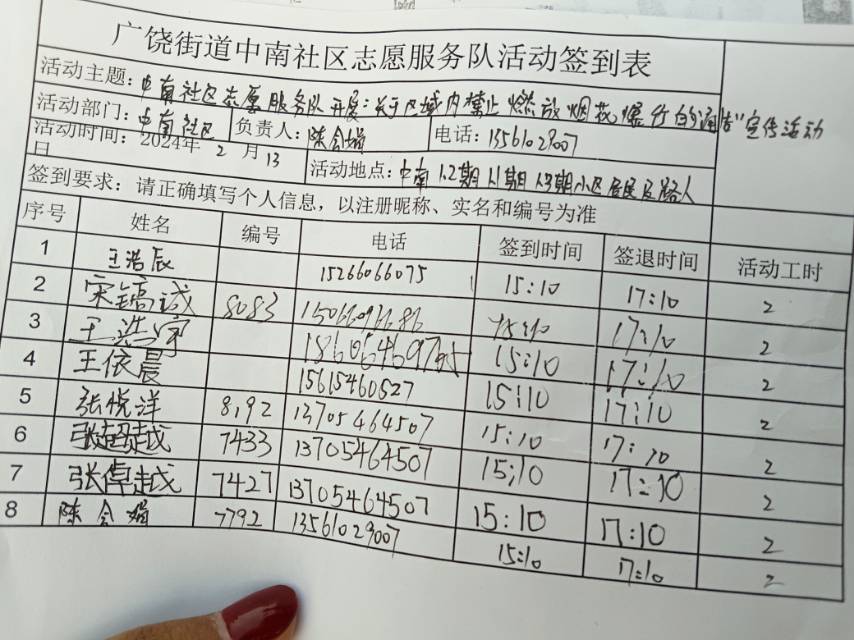 广饶街道中南社区志愿服务队活动签到表
活动主题：中南社区志愿服务队开展：关于区域内禁止燃放烟花爆竹的通告"宣传活动
活动部门：中南社区 负责人：陈会娟 电话：13561029007
活动时间：2024年 2 月 13 日 活动地点：中南1.2期 11期 13期小区居民及路人
签到要求：请正确填写个人信息，以注册昵称、实名和编号为准
序号 姓名 编号 电话 签到时间 签退时间 活动工时
1 王浩辰 15266066075 15:10 17:10 2
2 宋镐诚 8083 15:10 17:10 2
3 王浩宇 15:10 17:10 2
4 王依晨 15615460527 15:10 17:10 2
5 张悦洋 8192 13705464507 15:10 17:10 2
6 张超越 7433 13705464507 15:10 17:10 2
7 张卓越 7427 13705464507 15:10 17:10 2
8 陈会娟 7792 13561029007 15:10 17:10 2